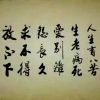 人生有八苦
生老病死
爱别离
怨長久
求不得
放不下